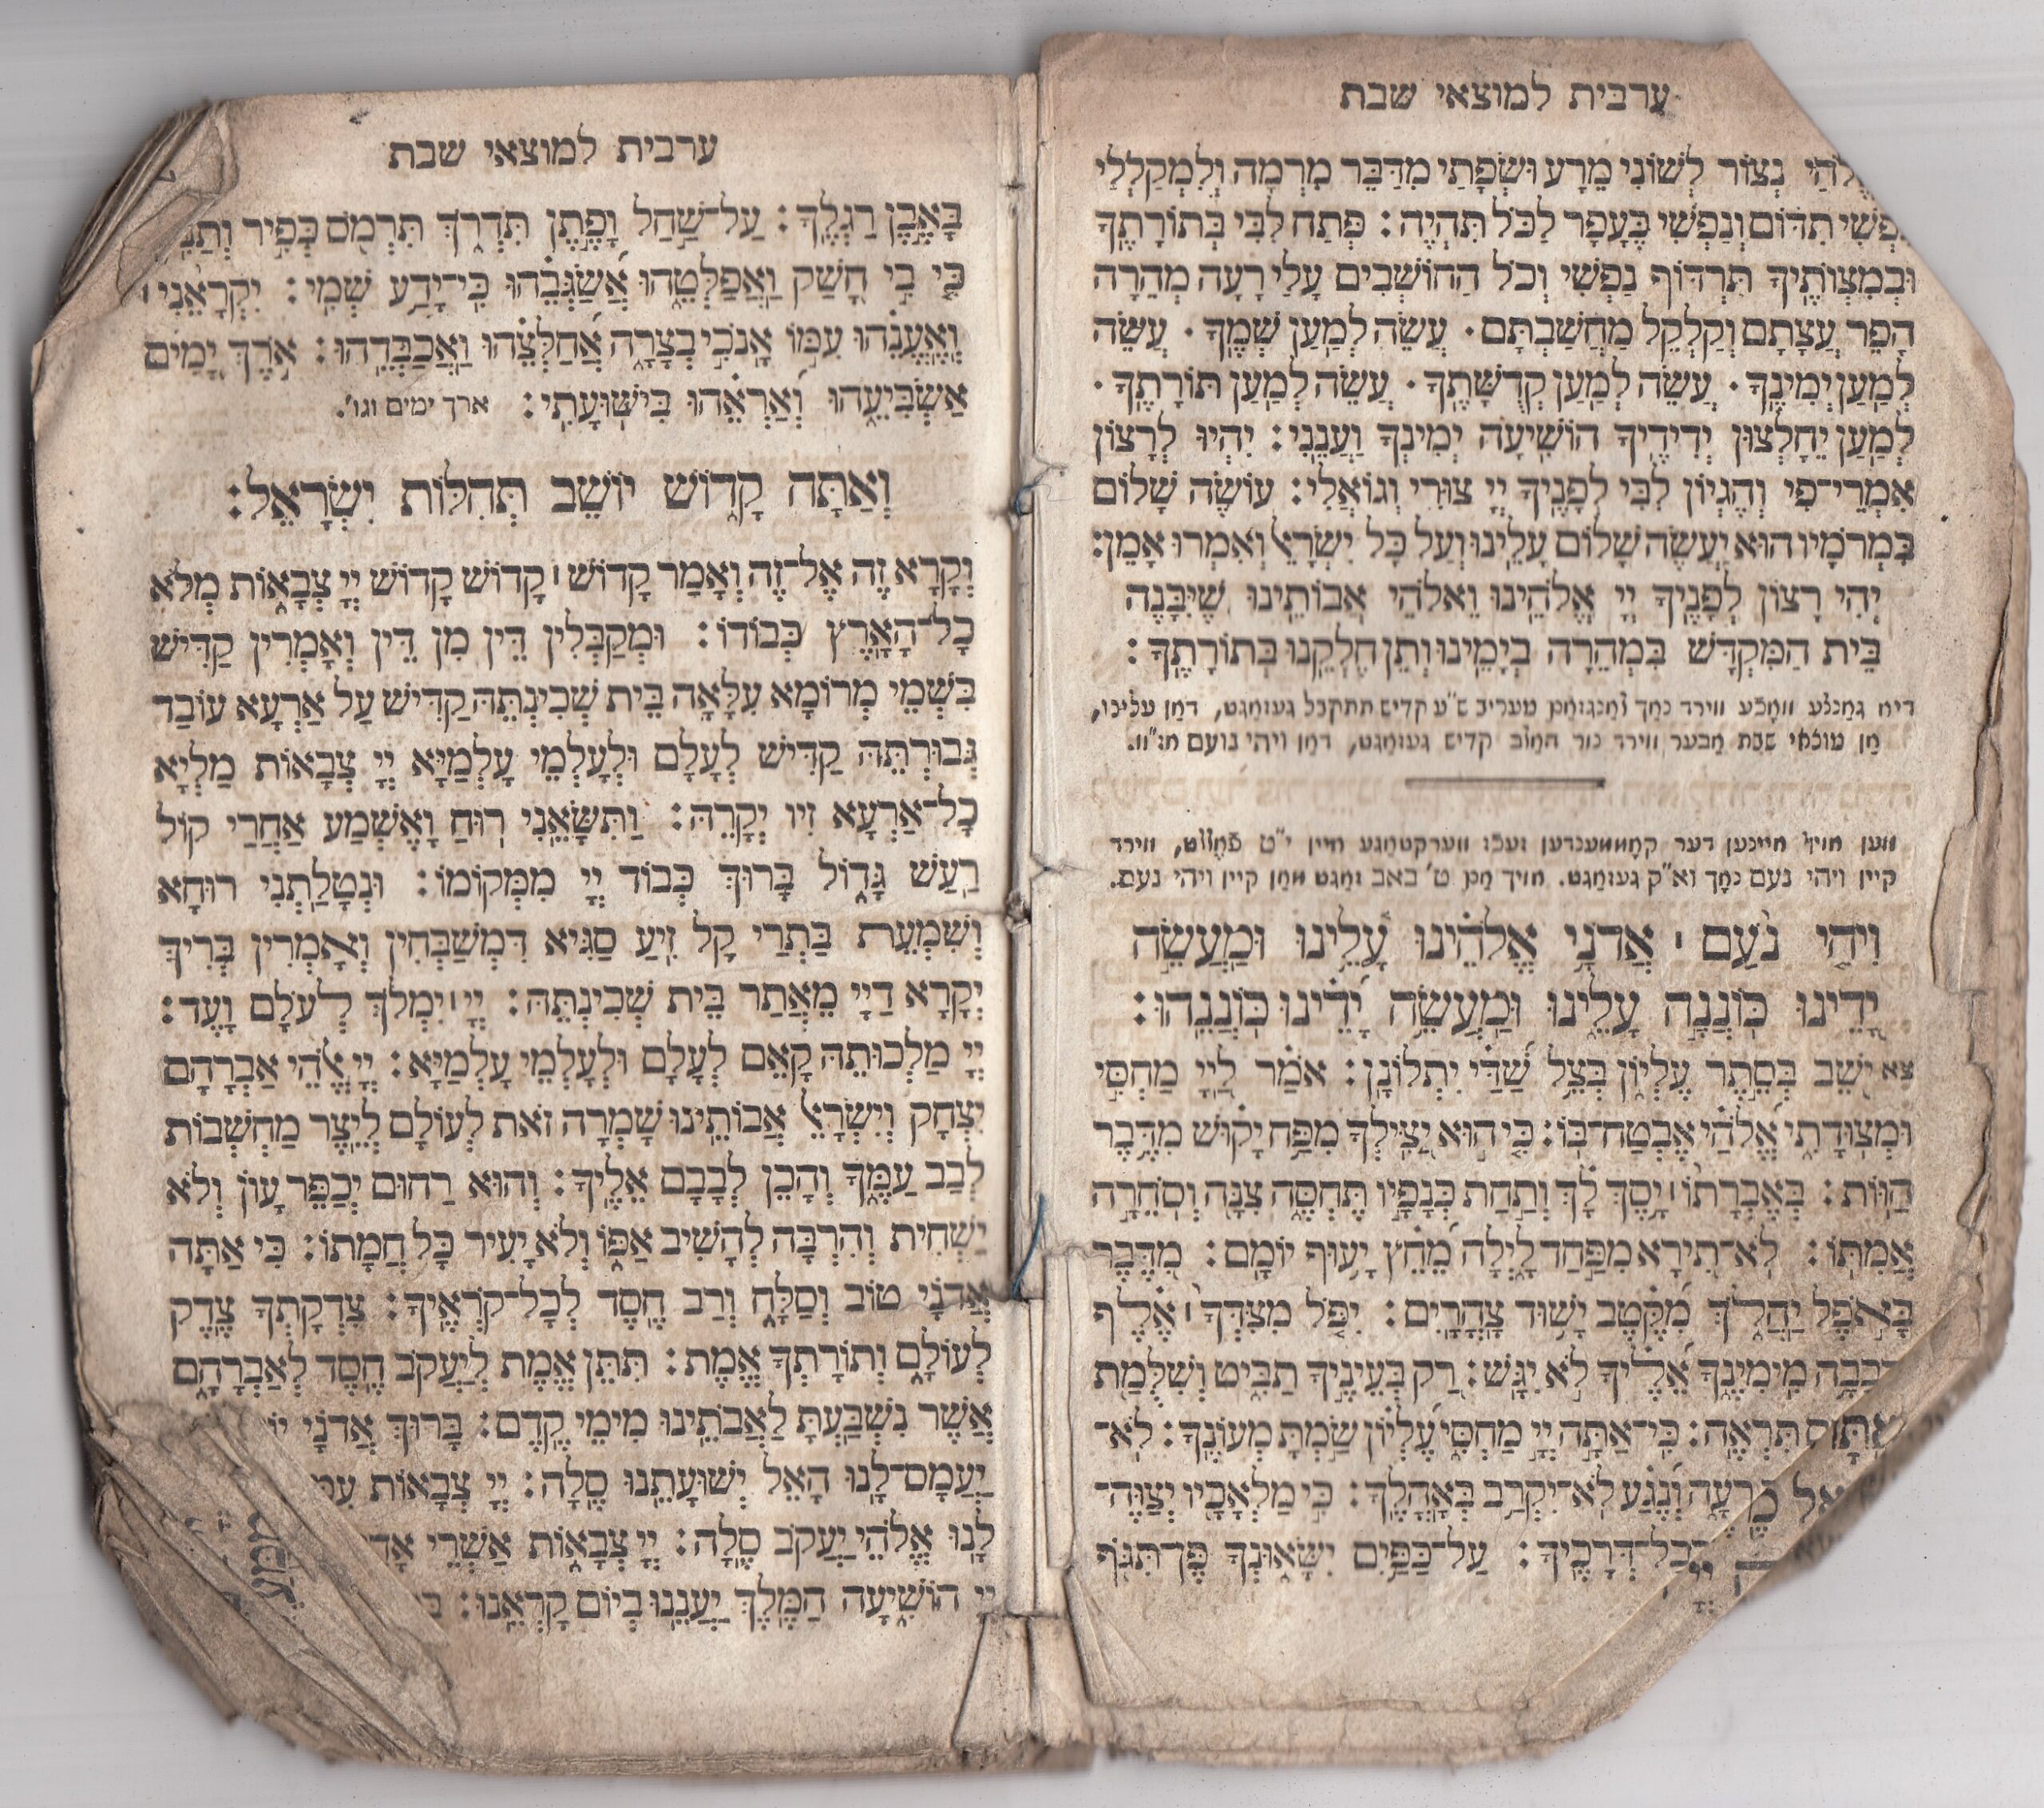 ערבית למוצאי שבת
נְצוֹר לְשׁוֹנִי מֵרָע וּשְׂפָתַי מִדַּבֵּר מִרְמָה וְלִמְקַלְלַי
נַפְשִׁי תִדּוֹם וְנַפְשִׁי כֶּעָפָר לַכֹּל תִּהְיֶה: פְּתַח לִבִּי בְּתוֹרָתֶךָ
וּבְמִצְוֹתֶיךָ תִּרְדּוֹף נַפְשִׁי וְכֹל הַחוֹשְׁבִים עָלַי רָעָה מְהֵרָה
הָפֵר עֲצָתָם וְקַלְקֵל מַחֲשַׁבְתָּם. עֲשֵׂה לְמַעַן שְׁמֶךָ. עֲשֵׂה
לְמַעַן יְמִינֶךָ. עֲשֵׂה לְמַעַן קְדֻשָּׁתֶךָ. עֲשֵׂה לְמַעַן תּוֹרָתֶךָ.
לְמַעַן יֵחָלְצוּן יְדִידֶיךָ הוֹשִׁיעָה יְמִינְךָ וַעֲנֵנִי: יִהְיוּ לְרָצוֹן
אִמְרֵי־פִי וְהֶגְיוֹן לִבִּי לְפָנֶיךָ יְיָ צוּרִי וְגוֹאֲלִי: עוֹשֶׂה שָׁלוֹם
בִּמְרֹמָיו הוּא יַעֲשֶׂה שָׁלוֹם עָלֵינוּ וְעַל כָּל יִשְׂרָאֵל וְאִמְרוּ אָמֵן:
יְהִי רָצוֹן לְפָנֶיךָ יְיָ אֱלֹהֵינוּ וֵאלֹהֵי אֲבוֹתֵינוּ שֶׁיִּבָּנֶה
בֵּית הַמִּקְדָּשׁ בִּמְהֵרָה בְיָמֵינוּ וְתֵן חֶלְקֵנוּ בְּתוֹרָתֶךָ:
דיא גאנצע וואָכע ווירד נאָך לאנגזאם מעריב ש"ע קדיש תתקבל געזאגט, דאן עלינו,
אן מוצאי שבת אבער ווירד נור האלב קדיש געזאגט, דאן ויהי נועם א:"וו.
ווען אויף איינען דער קאָממענדען זעכס ווערקטאגע איין י"ט פאֶללט, ווירד
קיין ויהי נעם נאָך וא"ק געזאגט. אויך אם ט' באב זאגט מאן קיין ויהי נעם.
וִיהִי נֹעַם ׀ אֲדֹנָי אֱלֹהֵינוּ עָלֵינוּ וּמַעֲשֵׂה
יָדֵינוּ כּוֹנְנָה עָלֵינוּ וּמַעֲשֵׂה יָדֵינוּ כּוֹנְנֵהוּ:
צא יֹשֵׁב בְּסֵתֶר עֶלְיוֹן בְּצֵל שַׁדַּי יִתְלוֹנָן: אֹמַר לַיְיָ מַחְסִי
וּמְצוּדָתִי אֱלֹהַי אֶבְטַח־בּוֹ: כִּי הוּא יַצִּילְךָ מִפַּח יָקוּשׁ מִדֶּבֶר
הַוּוֹת: בְּאֶבְרָתוֹ ׀ יָסֶךְ לָךְ וְתַחַת כְּנָפָיו תֶּחְסֶה צִנָּה וְסֹחֵרָה
אֲמִתּוֹ: לֹא־תִירָא מִפַּחַד לָיְלָה מֵחֵץ יָעוּף יוֹמָם: מִדֶּבֶר
בָּאֹפֶל יַהֲלֹךְ מִקֶּטֶב יָשׁוּד צָהֳרָיִם: יִפֹּל מִצִּדְּךָ ׀ אֶלֶף
וּרְבָבָה מִימִינֶךָ אֵלֶיךָ לֹא יִגָּשׁ: רַק בְּעֵינֶיךָ תַבִּיט וְשִׁלֻּמַת
תִּרְאֶה: כִּי־אַתָּה יְיָ מַחְסִי עֶלְיוֹן שַׂמְתָּ מְעוֹנֶךָ: לֹא־
רָעָה וְנֶגַע לֹא־יִקְרַב בְּאָהֳלֶךָ: כִּי מַלְאָכָיו יְצַוֶּה־
בְּכָל־דְּרָכֶיךָ: עַל־כַּפַּיִם יִשָּׂאוּנְךָ פֶּן־תִּגֹּף
ערבית למוצאי שבת
בָּאֶבֶן רַגְלֶךָ: עַל־שַׁחַל וָפֶתֶן תִּדְרֹךְ תִּרְמֹס כְּפִיר
כִּי בִי חָשַׁק וַאֲפַלְּטֵהוּ אֲשַׂגְּבֵהוּ כִּי־יָדַע שְׁמִי: יִקְרָאֵנִי ׀
וְאֶעֱנֵהוּ עִמּוֹ אָנֹכִי בְצָרָה אֲחַלְּצֵהוּ וַאֲכַבְּדֵהוּ: אֹרֶךְ יָמִים
אַשְׂבִּיעֵהוּ וְאַרְאֵהוּ בִּישׁוּעָתִי: ארך ימים וגו'.
וְאַתָּה קָדוֹשׁ יוֹשֵׁב תְּהִלּוֹת יִשְׂרָאֵל:
וְקָרָא זֶה אֶל־זֶה וְאָמַר קָדוֹשׁ ׀ קָדוֹשׁ קָדוֹשׁ יְיָ צְבָאוֹת מְלֹא
כָל־הָאָרֶץ כְּבוֹדוֹ: וּמְקַבְּלִין דֵּין מִן דֵּין וְאָמְרִין קַדִּישׁ
בִּשְׁמֵי מְרוֹמָא עִלָּאָה בֵּית שְׁכִינְתֵּהּ קַדִּישׁ עַל אַרְעָא עוֹבַד
גְּבוּרְתֵּהּ קַדִּישׁ לְעָלַם וּלְעָלְמֵי עָלְמַיָּא יְיָ צְבָאוֹת מַלְיָא
כָל־אַרְעָא זִיו יְקָרֵהּ: וַתִּשָּׂאֵנִי רוּחַ וָאֶשְׁמַע אַחֲרַי קוֹל
רַעַשׁ גָּדוֹל בָּרוּךְ כְּבוֹד יְיָ מִמְּקוֹמוֹ: וּנְטָלַתְנִי רוּחָא
וְשִׁמְעֵת בַּתְרַי קָל זִיעַ סַגִּיא דִּמְשַׁבְּחִין וְאָמְרִין בְּרִיךְ
יְקָרָא דַיְיָ מֵאֲתַר בֵּית שְׁכִינְתֵּהּ: יְיָ ׀ יִמְלֹךְ לְעֹלָם וָעֶד:
יְיָ מַלְכוּתֵהּ קָאֵם לְעָלַם וּלְעָלְמֵי עָלְמַיָּא: יְיָ אֱלֹהֵי אַבְרָהָם
יִצְחָק וְיִשְׂרָאֵל אֲבוֹתֵינוּ שָׁמְרָה זֹאת לְעוֹלָם לְיֵצֶר מַחְשְׁבוֹת
לְבַב עַמֶּךָ וְהָכֵן לְבָבָם אֵלֶיךָ: וְהוּא רַחוּם יְכַפֵּר עָוֹן וְלֹא
יַשְׁחִית וְהִרְבָּה לְהָשִׁיב אַפּוֹ וְלֹא יָעִיר כָּל חֲמָתוֹ: כִּי אַתָּה
אֲדֹנָי טוֹב וְסַלָּח וְרַב חֶסֶד לְכָל־קֹרְאֶיךָ: צִדְקָתְךָ צֶדֶק
לְעוֹלָם וְתוֹרָתְךָ אֱמֶת: תִּתֵּן אֱמֶת לְיַעֲקֹב חֶסֶד לְאַבְרָהָם
אֲשֶׁר נִשְׁבַּעְתָּ לַאֲבֹתֵינוּ מִימֵי קֶדֶם: בָּרוּךְ אֲדֹנָי
יַעֲמָס־לָנוּ הָאֵל יְשׁוּעָתֵנוּ סֶלָה: יְיָ צְבָאוֹת
לָנוּ אֱלֹהֵי יַעֲקֹב סֶלָה: יְיָ צְבָאוֹת אַשְׁרֵי
יְיָ הוֹשִׁיעָה הַמֶּלֶךְ יַעֲנֵנוּ בְיוֹם קָרְאֵנוּ: